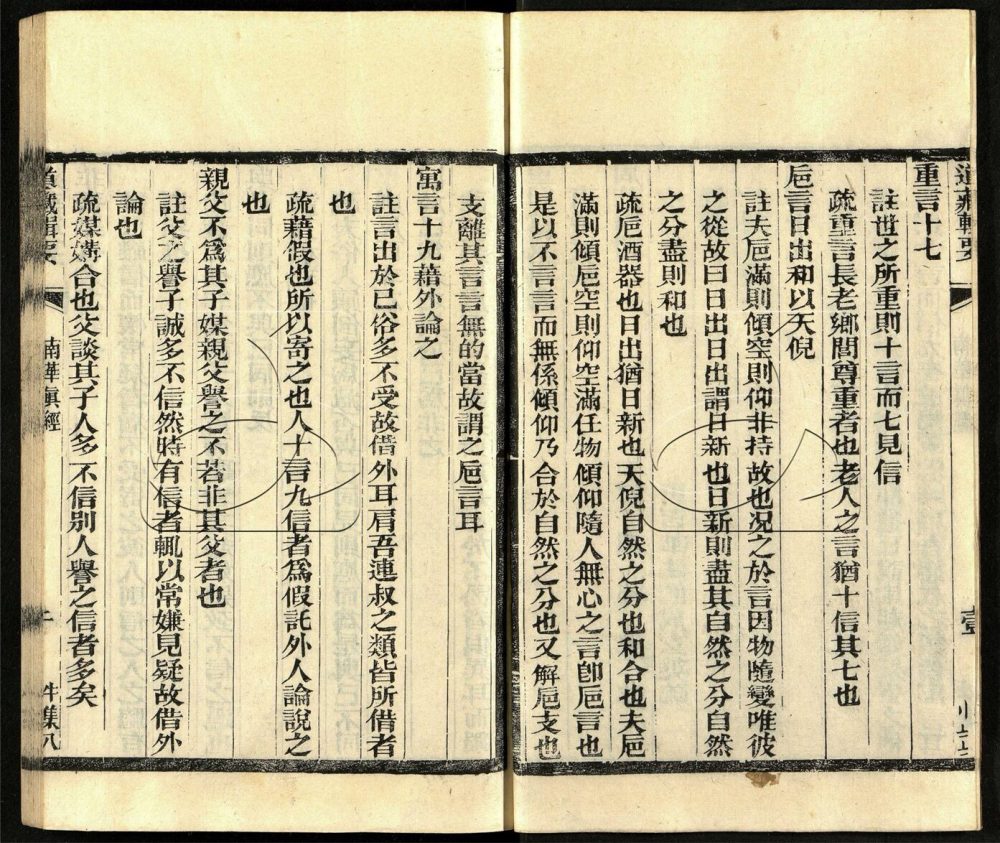 道藏輯要
壹
重言十七
註世之所重則十言而七見信
疏重言長老鄉閭尊重者也老人之言猶十信其七也
巵言日出和以天倪
註夫巵滿則傾空則仰非持故也况之於言因物隨變唯彼
之從故曰日出日出謂日新也日新則盡其自然之分自然
之分盡則和也
疏巵酒器也日出猶日新也天倪自然之分也和合也夫巵
滿則傾巵空則仰空滿任物傾仰隨人無心之言卽巵言也
是以不言言而無係傾仰乃合於自然之分也又解巵支也
支離其言言無的當故謂之巵言耳
寓言十九藉外論之
註言出於已俗多不受故借外耳肩吾連叔之類皆所借者
也
疏藉假也所以寄之也人十言九信者爲假託外人論說之
也
親父不爲其子媒親父譽之不若非其父者也
註父之譽子誠多不信然時有信者輒以常嫌見疑故借外
論也
疏媒媾合也父談其子人多不信別人譽之信者多矣
道藏輯要
南華眞經
牛集八